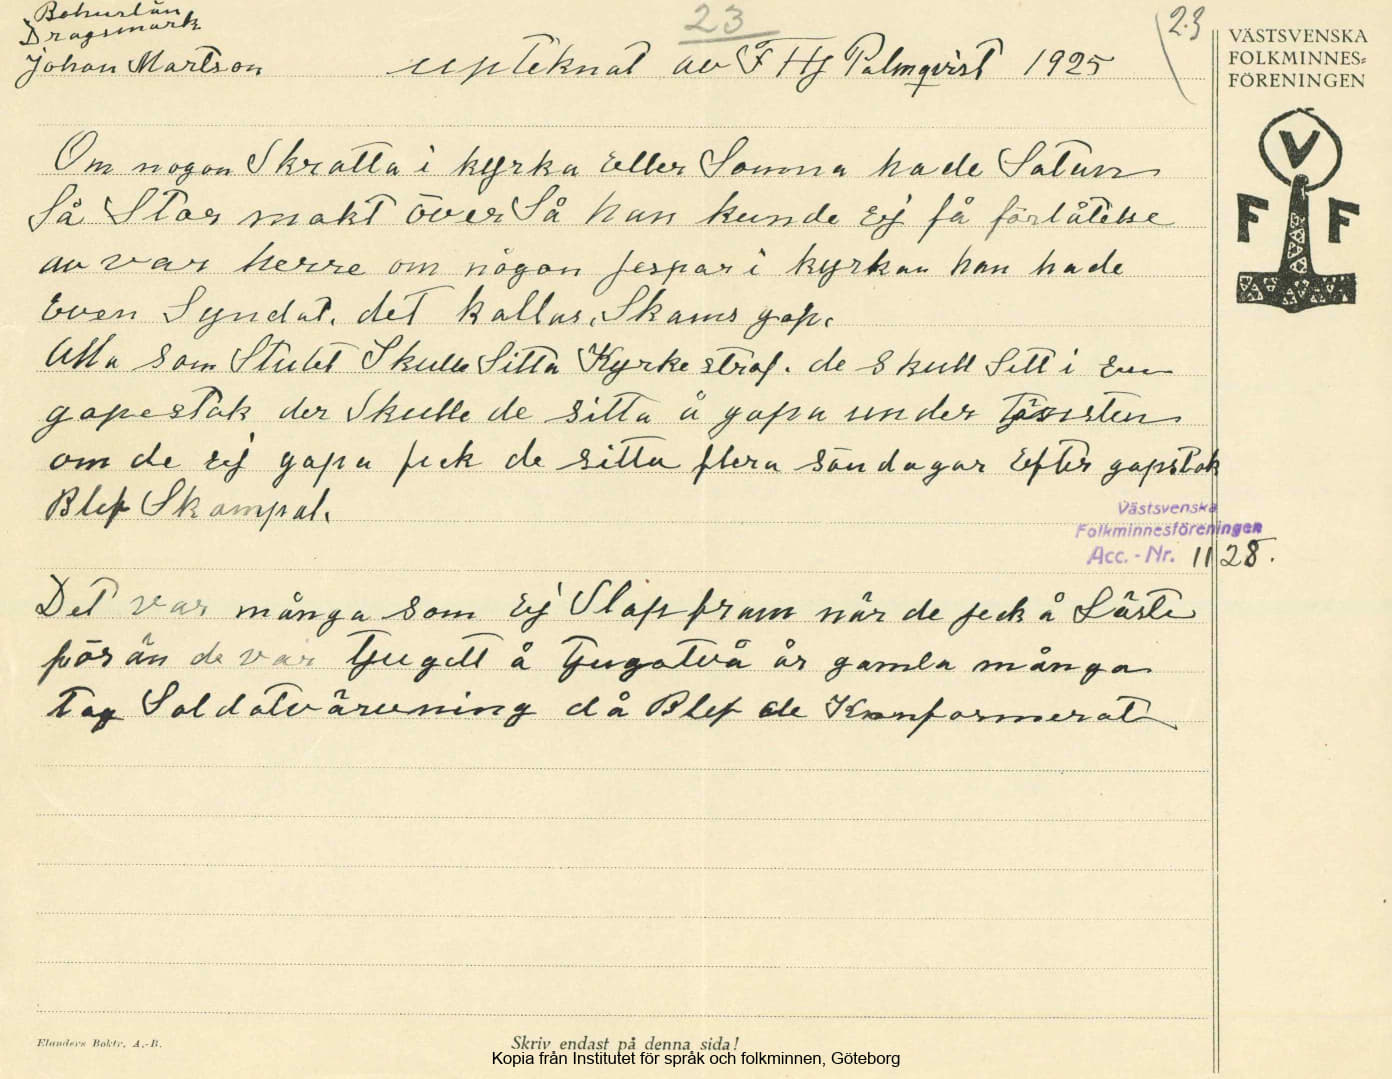 23
Bohuslän
Dragsmark
Johan Martson
upteknat av F Hj Palmqvist 1925
23
VÄSTSVENSKA
FOLKMINNES=
FÖRENINGEN
V
F F
Om nogon Skratta i kyrka Eller Somna hade Satan
Så Stor makt över Så han kunde Ej få förlåtelse
av var herre om någon jespar i kyrkan han hade
Even Syndat. det kallas. Skams gap.
Alla som Stulet Skulle Sitta Kyrke straf. de Skull Sitt i En
gapestok der Skulle de sitta å gapa under tjänsten
om de Ej gapa feck de sitta flera söndagar Efter gapstok
Blef Skampal.
Västsvenska
Folkminnesföreningen
Acc.-Nr. 1128.
Det var många som Ej Slap fram när de feck å Läste
för än de var tjugett å tjugotvå år gamla många
tog Soldatvärvning då Blef de Konformerat
Elanders Boktr. A.-B.
Skriv endast på denna sida!
Kopia från Institutet för språk och folkminnen, Göteborg